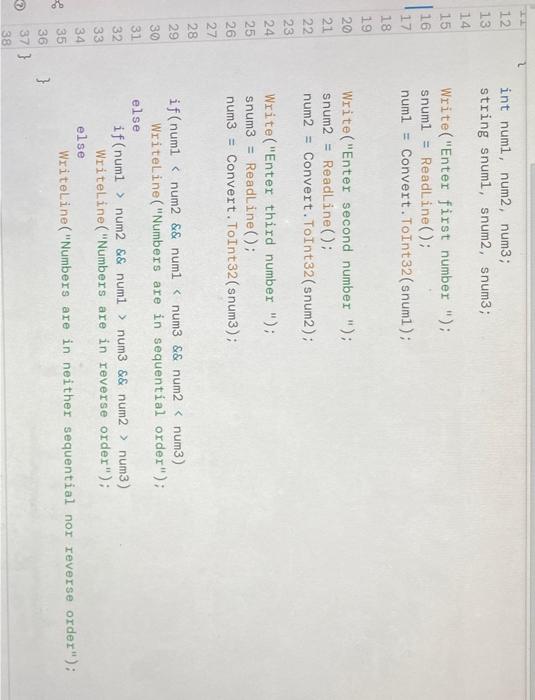 11 {
12 int num1, num2, num3;
13 string snum1, snum2, snum3;
14
15 Write("Enter first number ");
16 snum1 = ReadLine();
17 num1 = Convert.ToInt32(snum1);
18
19
20 Write("Enter second number ");
21 snum2 = ReadLine();
22 num2 = Convert.ToInt32(snum2);
23
24 Write("Enter third number ");
25 snum3 = ReadLine();
26 num3 = Convert.ToInt32(snum3);
27
28
29 if(num1 < num2 && num1 < num3 && num2 < num3)
30 WriteLine("Numbers are in sequential order");
31 else
32 if(num1 > num2 && num1 > num3 && num2 > num3)
33 WriteLine("Numbers are in reverse order");
34 else
35 WriteLine("Numbers are in neither sequential nor reverse order");
36 }
37 }
38